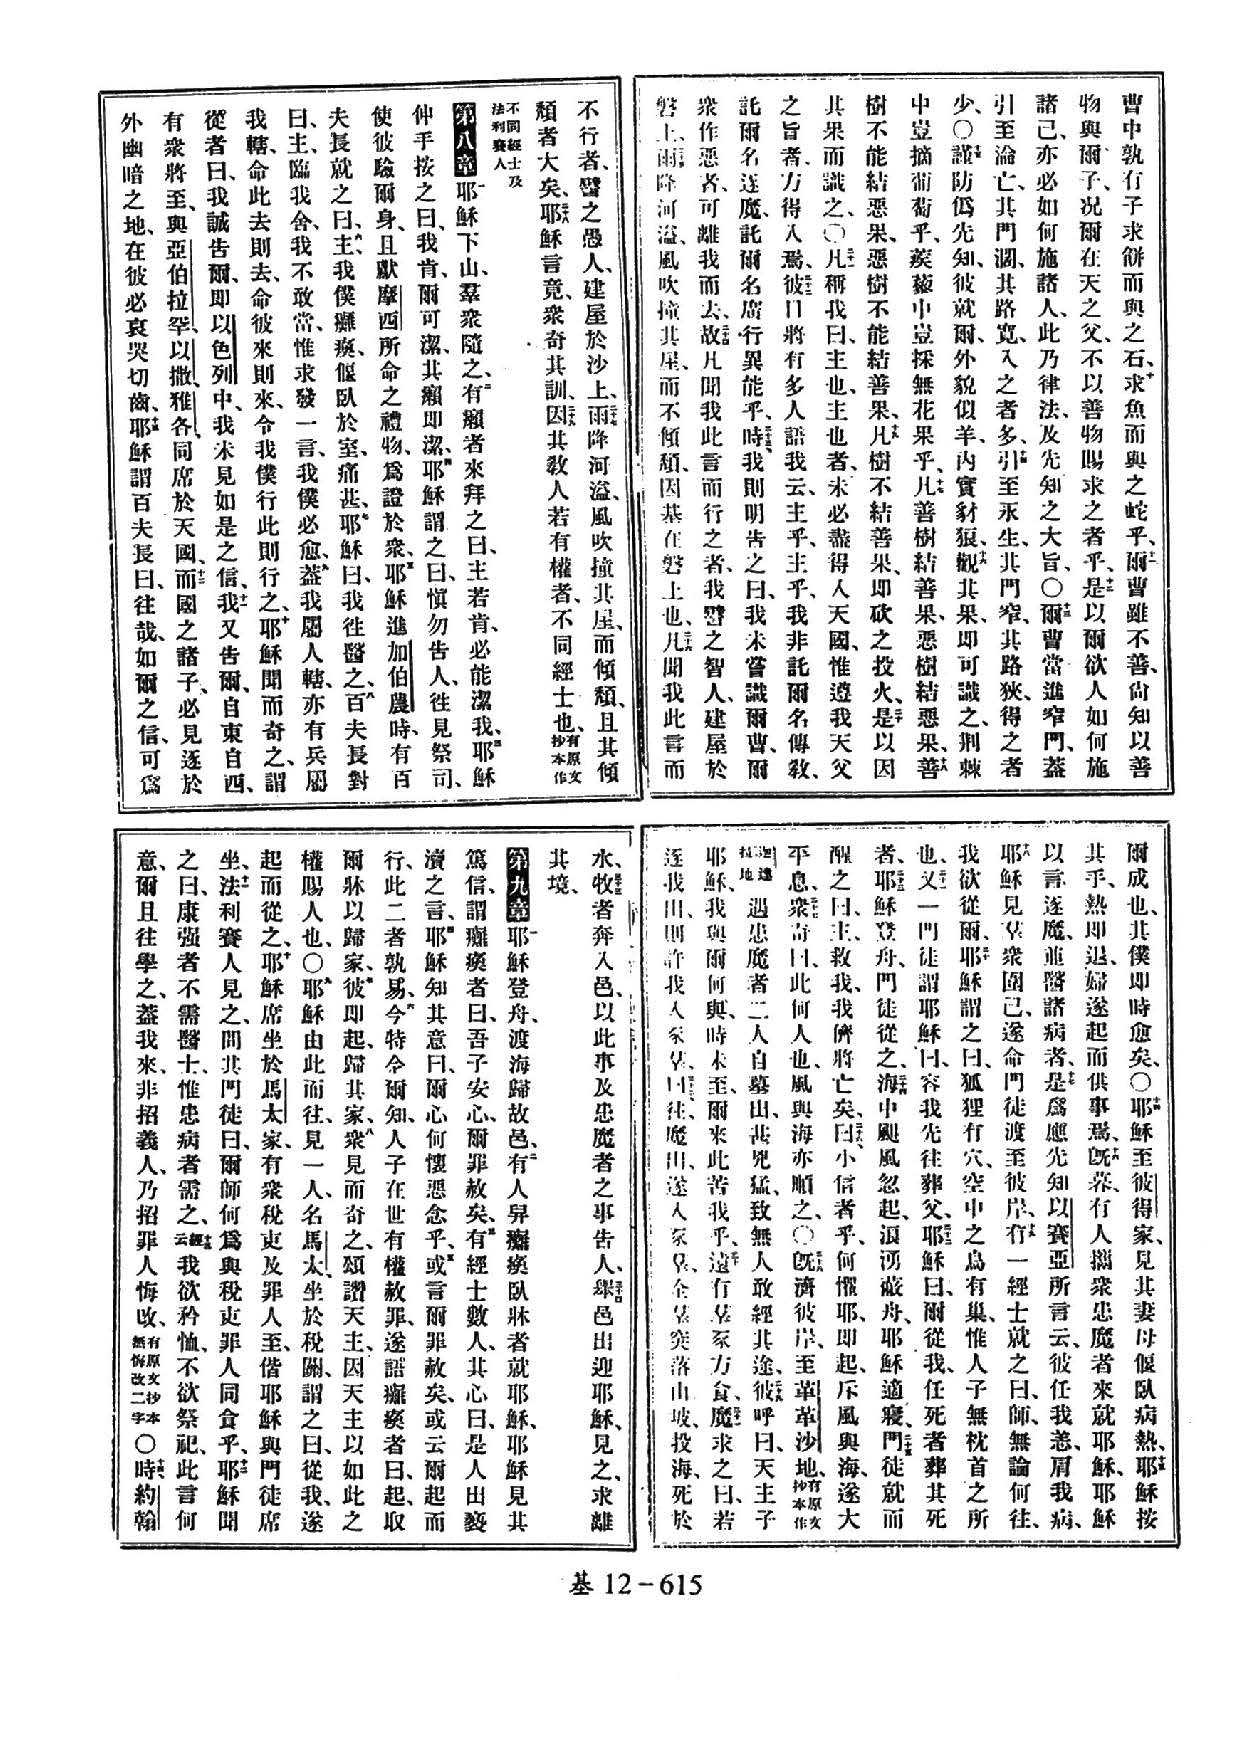 曹中孰有子求餅而與之石、十求魚而與之蛇乎、十一爾曹雖不善、尙知以善
物與爾子、况爾在天之父、不以善物賜求之者乎、十二是以爾欲人如何施
諸己、亦必如何施諸人、此乃律法、及先知之大旨、〇十三爾曹當進窄門、蓋
引至淪亡、其門濶、其路寬、入之者多、十四引至永生、其門窄、其路狹、得之者
少、〇十五謹防僞先知、彼就爾、外貌似羊、內實豺狼、十六觀其果、卽可識之、荆棘
中豈摘葡萄乎、蒺藜中豈採無花果乎、十七凡善樹結善果、惡樹結惡果、十八善
樹不能結惡果、惡樹不能結善果、十九凡樹不結善果、卽砍之投火、二十是以因
其果而識之、〇二十一凡稱我曰、主也主也者、未必盡得入天國、惟遵我天父
之旨者、方得入焉、二十二彼日將有多人語我云、主乎、主乎、我非託爾名傳敎、
託爾名逐魔、託爾名廣行異能乎、二十三時我則明告之曰、我未嘗識爾曹、爾
衆作惡者、可離我而去、二十四故凡聞我此言而行之者、我譬之智人、建屋於
磐上、二十五雨降河溢、風吹撞其屋、而不傾頹、因基在磐上也、二十六凡聞我此言而
不行者、譬之愚人、建屋於沙上、二十七雨降河溢、風吹撞其屋、而傾頹、且其傾
頹者大矣、二十八耶穌言竟、衆奇其訓、二十九因其敎人若有權者、不同經士也、有原文抄本作
不同經士及法利賽人
第八章 一耶穌下山、羣衆隨之、二有癩者來拜之曰、主若肯、必能潔我、三耶穌
伸手按之曰、我肯、爾可潔、其癩卽潔、四耶穌謂之曰、愼勿告人、往見祭司、
使彼驗爾身、且獻摩西所命之禮物、爲證於衆、五耶穌進加伯農時、有百
夫長就之曰、六主、我僕癱瘓、偃臥於室、痛甚、七耶穌曰、我往醫之、八百夫長對
曰、主、臨我舍、我不敢當、惟求發一言、我僕必愈、九蓋我屬人轄、亦有兵屬
我轄、命此去則去、命彼來則來、令我僕行此則行之、十耶穌聞而奇之、謂
從者曰、我誠告爾、卽以色列中、我未見如是之信、十一我又告爾、自東自西、
有衆將至、與亞伯拉罕、以撒、雅各同席於天國、十二而國之諸子、必見逐於
外幽暗之地、在彼必哀哭切齒、十三耶穌謂百夫長曰、往哉、如爾之信、可爲
爾成也、其僕卽時愈矣、〇十四耶穌至彼得家、見其妻母偃臥病熱、十五耶穌按
其手、熱卽退、婦遂起而供事焉、十六旣暮、有人攜衆患魔者來就耶穌、耶穌
以言逐魔、並醫諸病者、十七是爲應先知以賽亞所言云、彼任我恙、肩我病、
十八耶穌見羣衆圍己、遂命門徒渡至彼岸、十九有一經士就之曰、師、無論何往、
我欲從爾、二十耶穌謂之曰、狐狸有穴、空中之鳥有巢、惟人子無枕首之所
也、二十一又一門徒謂耶穌曰、容我先往葬父、二十二耶穌曰、爾從我、任死者葬其死
者、二十三耶穌登舟、門徒從之、二十四海中颶風忽起、浪湧蔽舟、耶穌適寢、二十五門徒就而
醒之曰、主、救我、我儕將亡矣、二十六曰、小信者乎、何懼耶、卽起、斥風與海、遂大
平息、二十七衆奇曰、此何人也、風與海亦順之、〇二十八旣濟彼岸、至革革沙地、有原文抄本作
迦達拉地 遇患魔者二人自墓出、甚兇猛、致無人敢經其途、二十九彼呼曰、天主子
耶穌、我與爾何與、時未至、爾來此苦我乎、三十遠有羣豕方食、三十一魔求之曰、若
逐我出、則許我入豕羣、三十二曰、往、魔出、遂入豕羣、全羣突落山坡、投海、死於
水、三十三牧者奔入邑、以此事及患魔者之事告人、三十四舉邑出迎耶穌、見之、求離
其境、
第九章 一耶穌登舟、渡海歸故邑、二有人舁癱瘓臥牀者就耶穌、耶穌見其
篤信、謂癱瘓者曰、吾子安心、爾罪赦矣、三有經士數人、其心曰、是人出褻
瀆之言、四耶穌知其意曰、爾心何懷惡念乎、五或言爾罪赦矣、或云爾起而
行、此二者孰易、六今特令爾知、人子在世有權赦罪、遂語癱瘓者曰、起、取
爾牀以歸家、七彼卽起、歸其家、八衆見而奇之、頌讚天主、因天主以如此之
權賜人也、〇九耶穌由此而往、見一人、名馬太、坐於稅關、謂之曰、從我、遂
起而從之、十耶穌席坐於馬太家、有衆稅吏及罪人至、偕耶穌與門徒席
坐、十一法利賽人見之、問其門徒曰、爾師何爲與稅吏罪人同食乎、十二耶穌聞
之曰、康强者不需醫士、惟患病者需之、十三經云、我欲矜恤、不欲祭祀、此言何
意、爾且往學之、蓋我來、非招義人、乃招罪人悔改、有原文抄本無悔改二字 〇十四時約翰
基 12－615